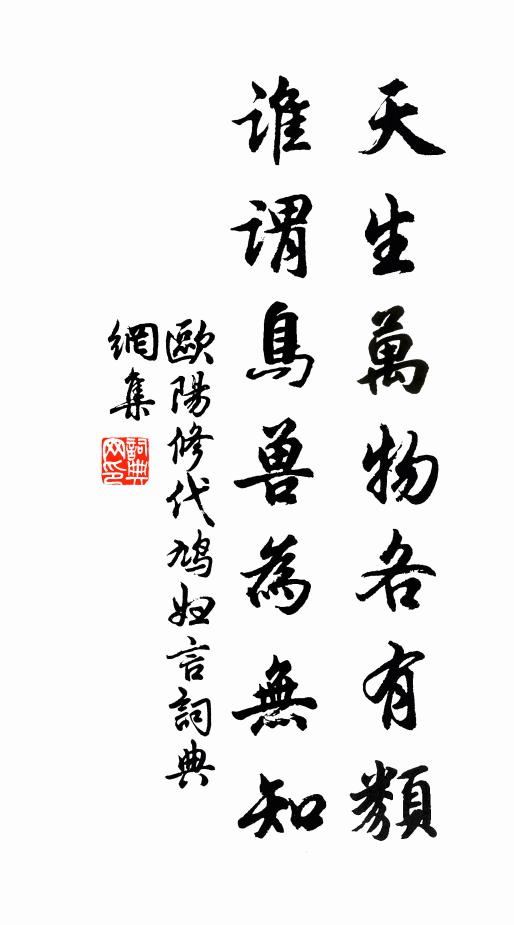 天生萬物各有類
誰謂鳥獸為無知
歐陽修代鳩婦言詞典
網集
詞典網印